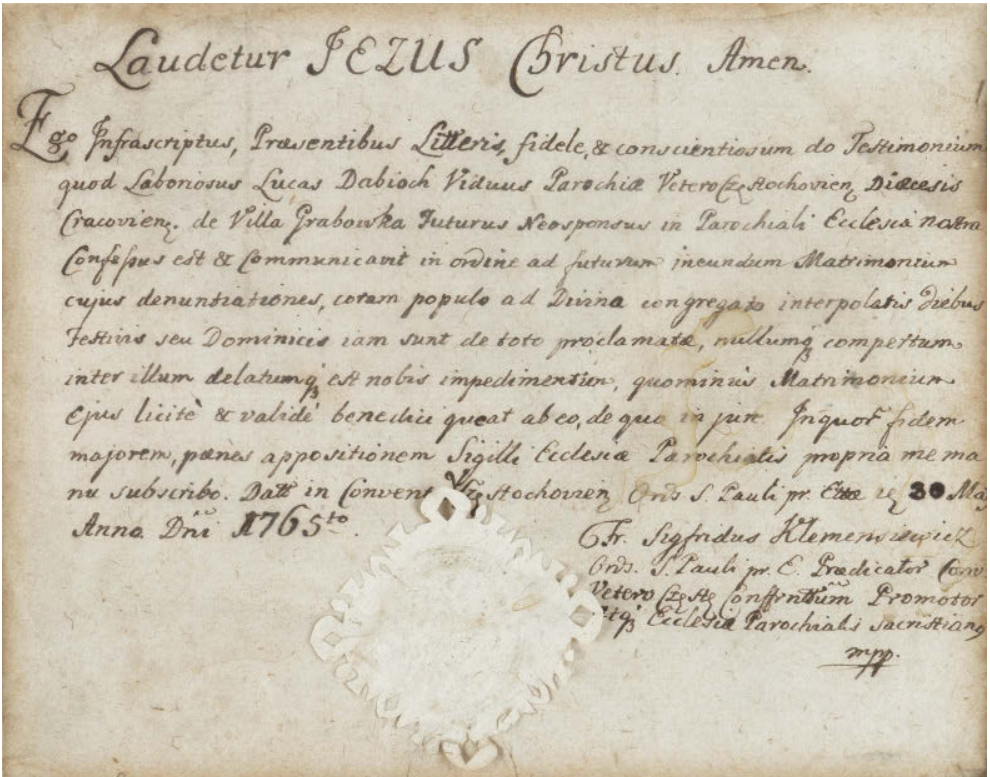 Laudetur JEZUS Christus. Amen.
Ego Infrascriptus, Præsentibus Litteris, fidele, & conscientiosum do Testimonium
quod Laboriosus Lucas Dabioch Viduus Parochiæ VeteroCzęstochovien, Diæcesis
Cracovien. de Villa Grabowka Futurus Neosponsus in Parochiali Ecclesia nostra
Confessus est & Communicavit in ordine ad futurum ineundum Matrimonium
cujus denuntiationes, coram populo ad Divina congregato interpolatis diebus
Festivis seu Dominicis iam sunt de toto proclamatæ, nullumq compertum
inter illum delatumq est nobis impedimentum, quominùs Matrimonium
Ejus licitè & validè benedici queat ab eo, de quo in jure. In quor fidem
majorem, pænes appositionem Sigilli Ecclesiæ Parochialis propria me ma
nu subscribo. Datt in Convent Częstochovien Ords S. Pauli pr. 30 Maj
Anno Dni 1765to.
Fr. Sigfridus Klemensiewicz
Ords. S. Pauli pr. E. Prædicator Conv.
Vetero Promotor
Ecclesiæ Parochialis sacristianq
mpp.